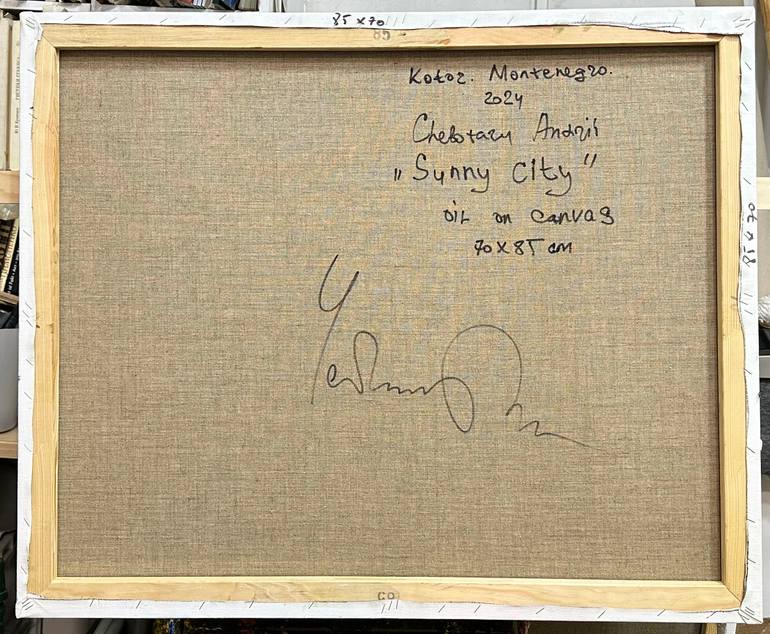 85 x 70
85
Kotor. Montenegro.
2024
Chebotaru Andrii
„Sunny City"
oil on canvas
70 x 85 cm
85 x 70